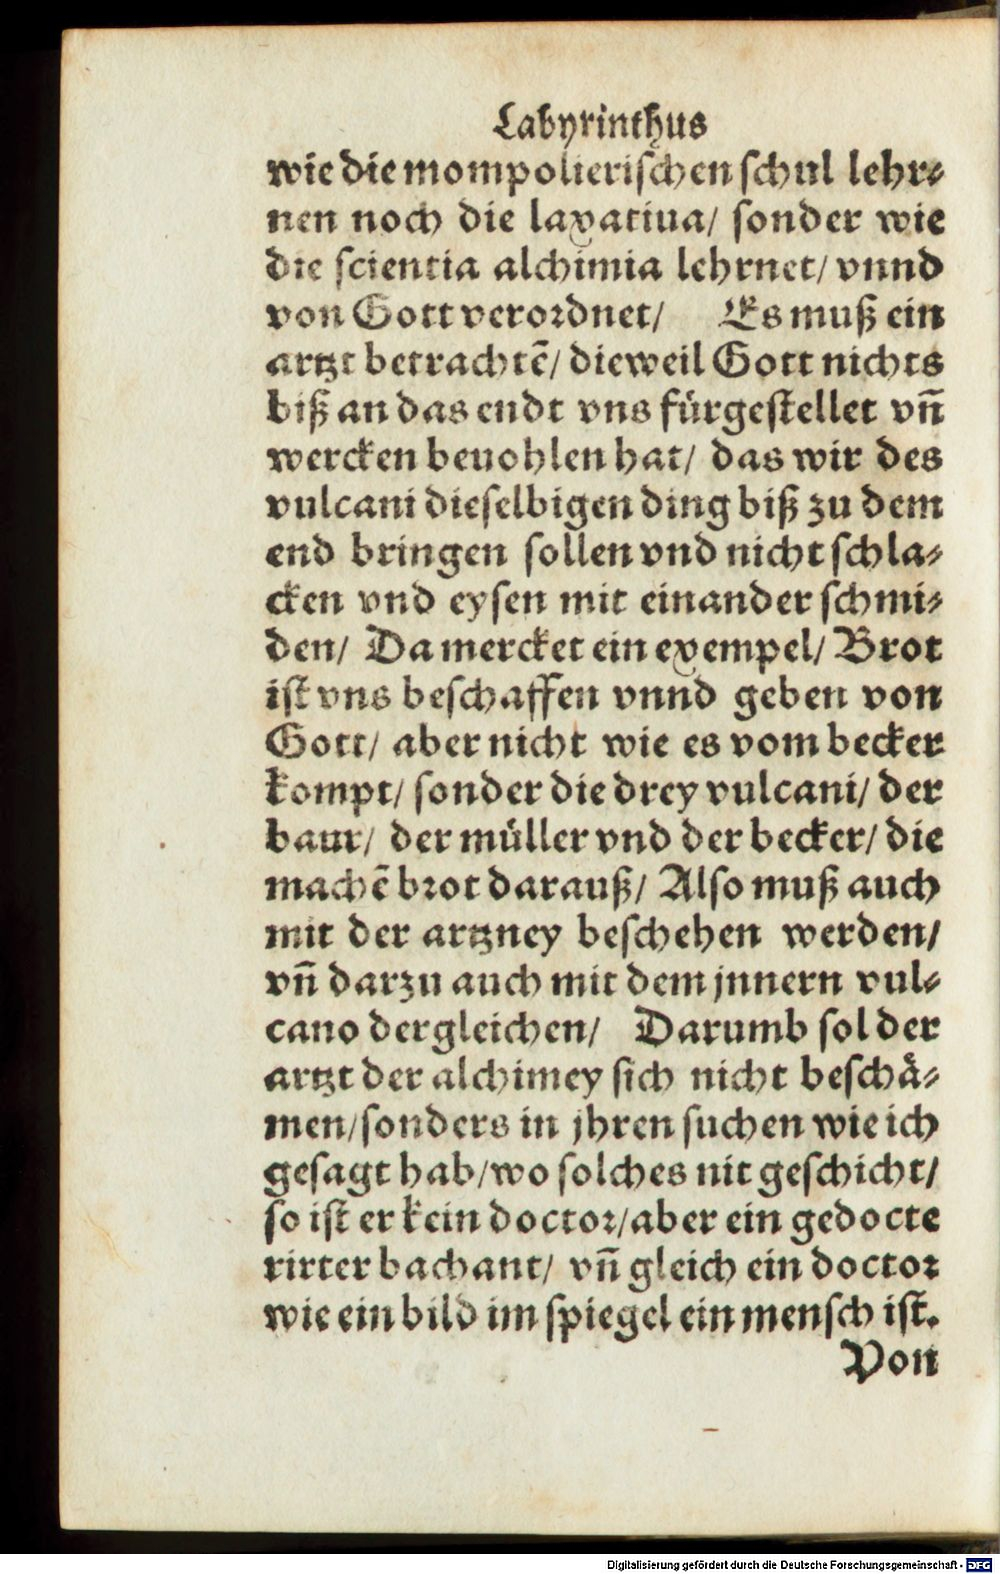 Labyrinthus
wie die mompolierischen schul lehr⸗
nen noch die laxatiua/ sonder wie
die scientia alchimia lehrnet/ vnnd
von Gott verordnet/ Es muß ein
artzt betrachtẽ/ dieweil Gott nichts
biß an das endt vns fürgestellet vñ
wercken beuohlen hat/ das wir des
vulcani dieselbigen ding biß zu dem
end bringen sollen vnd nicht schla⸗
cken vnd eysen mit einander schmi⸗
den/ Da mercket ein exempel/ Brot
ist vns beschaffen vnnd geben von
Gott/ aber nicht wie es vom becker
kompt/ sonder die drey vulcani/ der
baur/ der müller vnd der becker/ die
machẽ brot darauß/ Also muß auch
mit der artzney beschehen werden/
vñ darzu auch mit dem jnnern vul⸗
cano dergleichen/ Darumb sol der
artzt der alchimey sich nicht beschä⸗
men/sonders in jhren suchen wie ich
gesagt hab/wo solches nit geschicht/
so ist er kein doctor/aber ein gedocte
rirter bachant/ vñ gleich ein doctor
wie ein bild im spiegel ein mensch ist.
Von
Digitalisierung gefördert durch die Deutsche Forschungsgemeinschaft - DFG